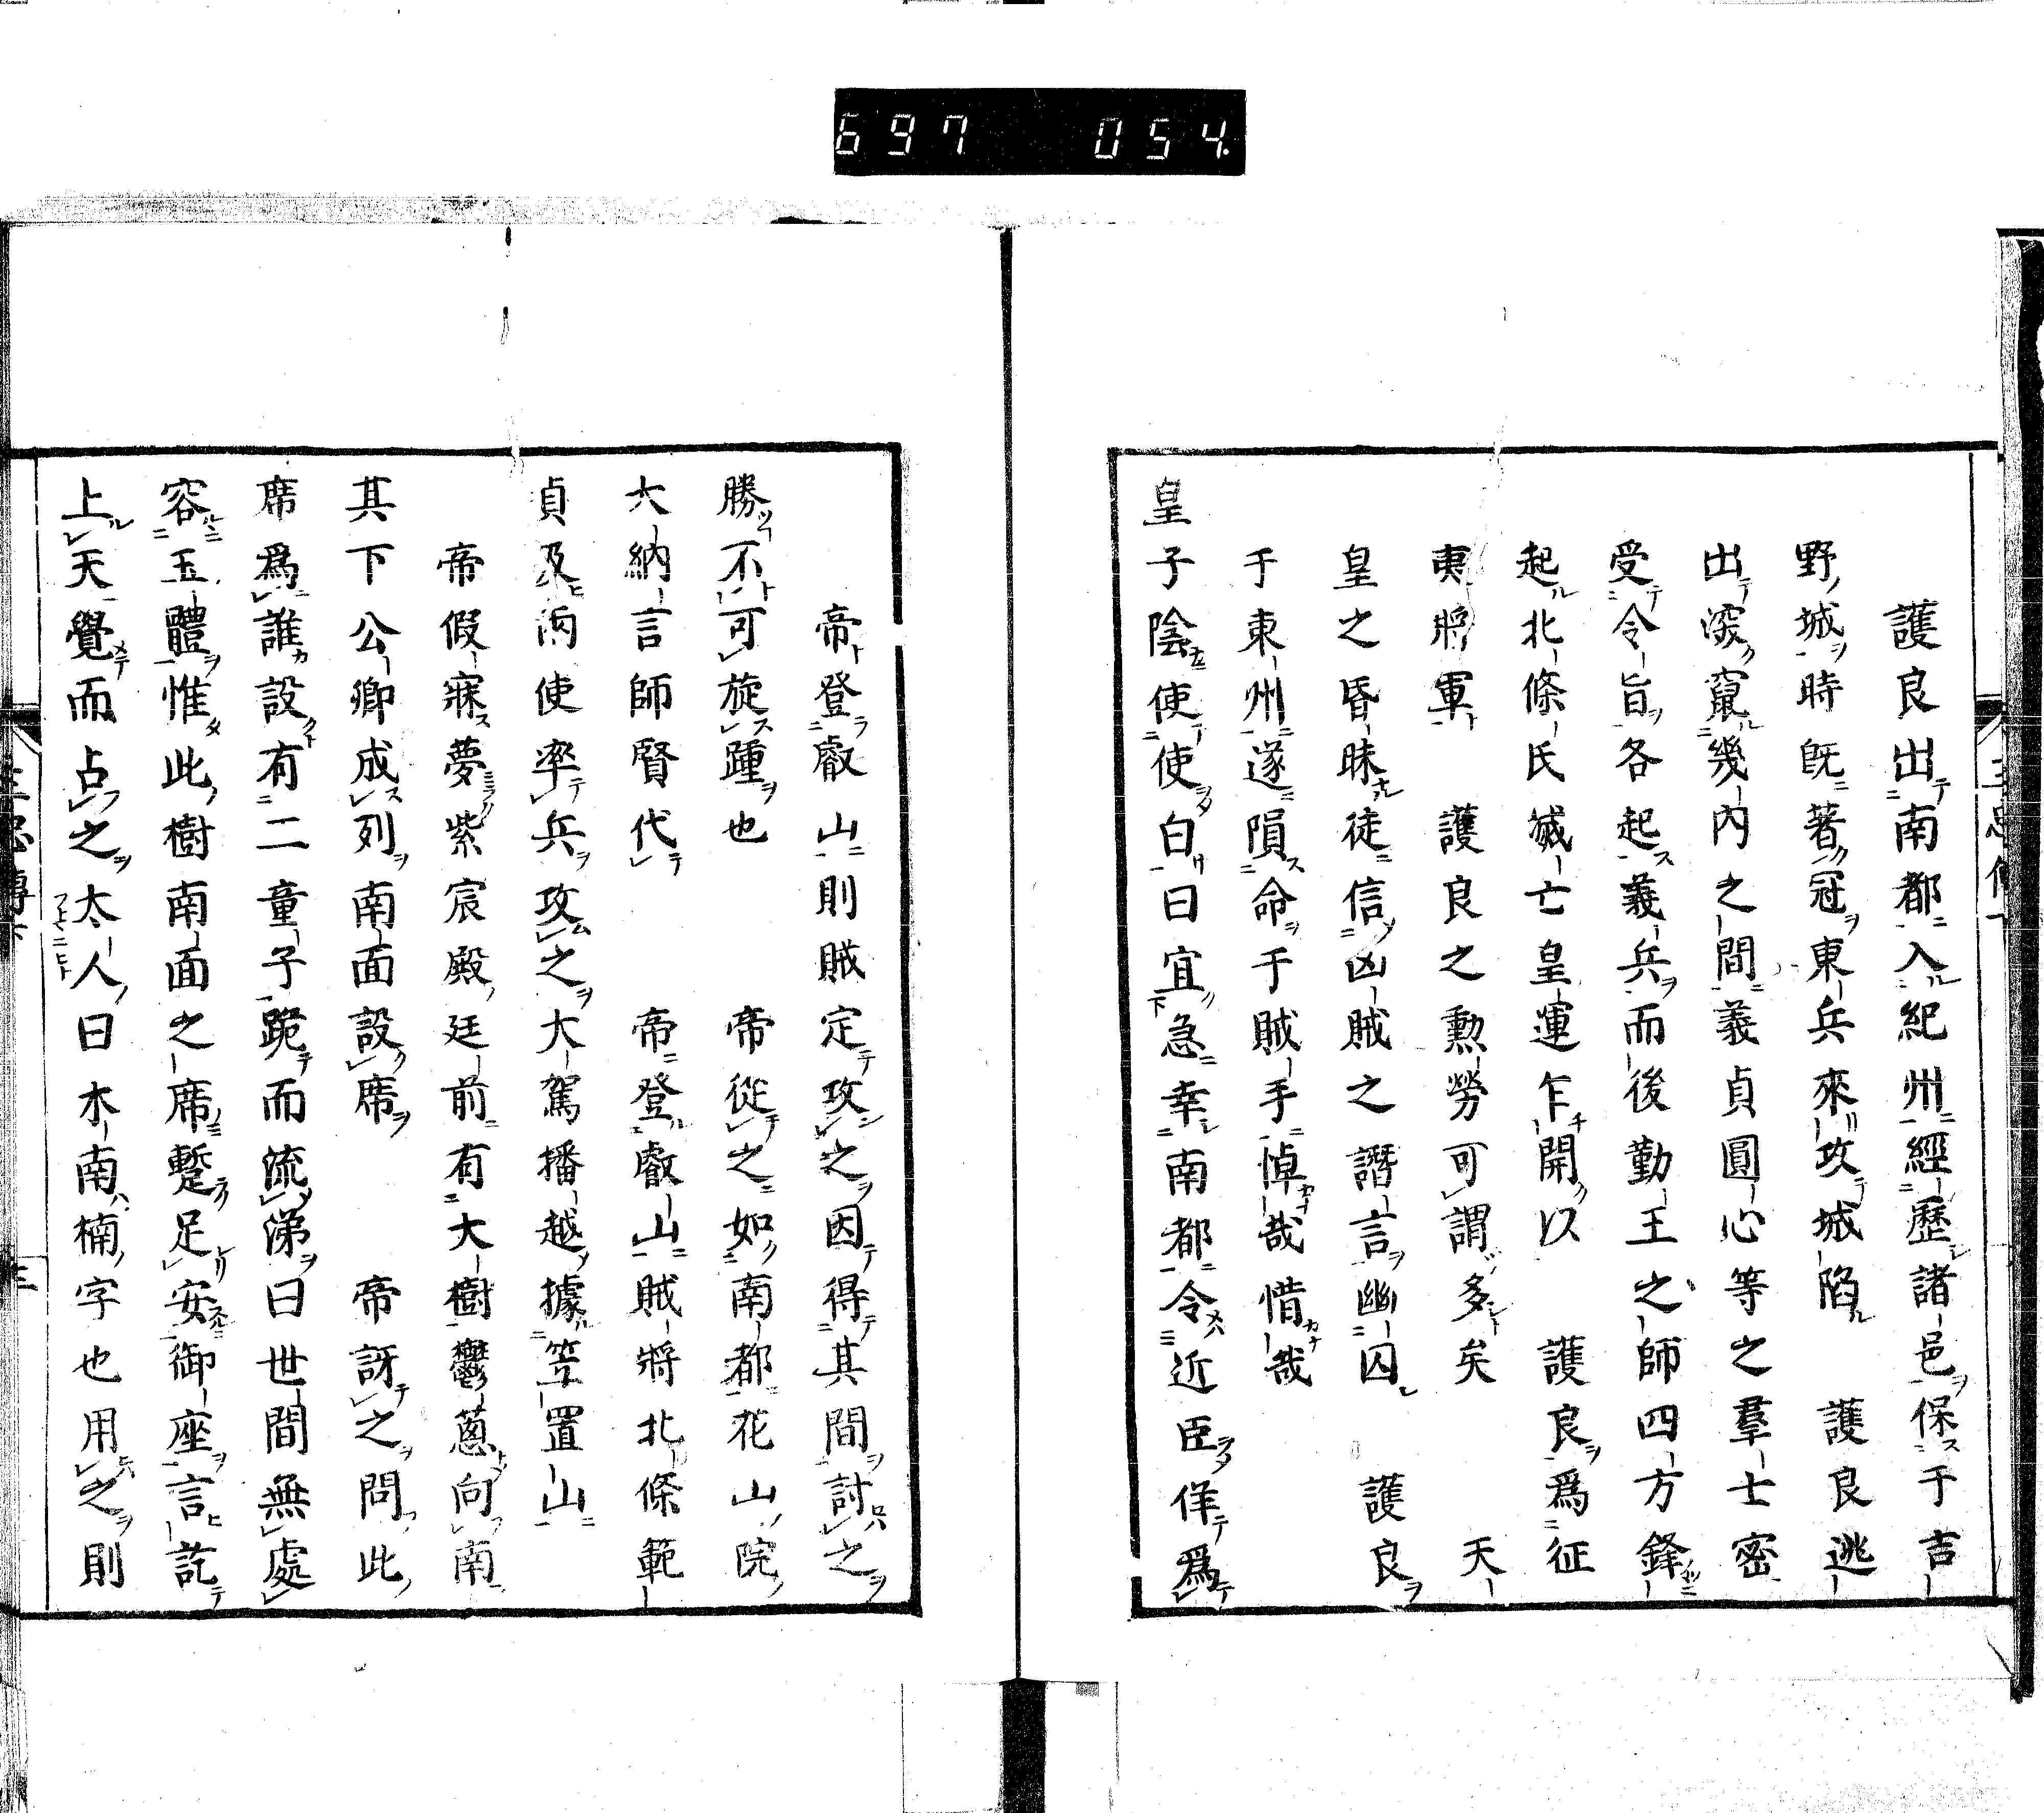 697 054
護良出南都入紀州經歷諸邑保于吉
野城時既著冠東兵來攻城陷　護良逃
出深竄幾內之間義貞圓心等之羣士密
受令旨各起義兵而後勤王之師四方鋒
起北條氏滅亡皇運乍開以　護良爲征
夷將軍　護良之勲勞可謂多矣　天
皇之昏昧徒信凶賊之譖言幽囚　護良
于東州遂隕命于賊手悼哉惜哉
皇子陰使使白曰宜急幸南都令近臣佯爲
帝登叡山則賊定攻之因得其間討之
勝不可旋踵也　帝從之如南都花山院
大納言師賢代　帝登叡山賊將北條範
貞及兩使率兵攻之大駕播越據笠置山
帝假寐夢紫宸殿廷前有大樹鬱蔥向南
其下公卿成列南面設席　帝訝之問此
席爲誰設有二童子跪而流涕曰世間無處
容玉體惟此樹南面之席蹔足安御座言訖
上天覺而占之太人曰木南楠字也用之則